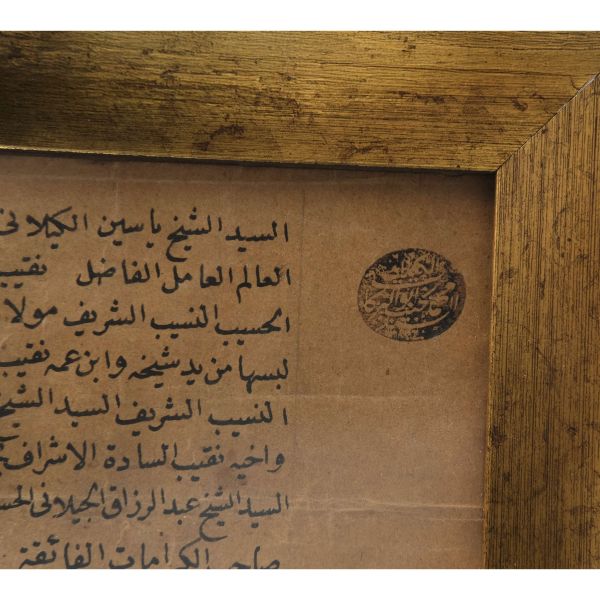 السيد الشيخ ياسين الكيلاني
العالم العامل الفاضل نقيب
الحسيب النسيب الشريف مولا
لبسها من يد شيخه وابن عمه نقيب
النسيب الشريف السيد الشيخ
واخيه نقيب السادة الاشراف
السيد الشيخ عبد الرزاق الجيلاني الحس
صاحب الكرامات الفائقة